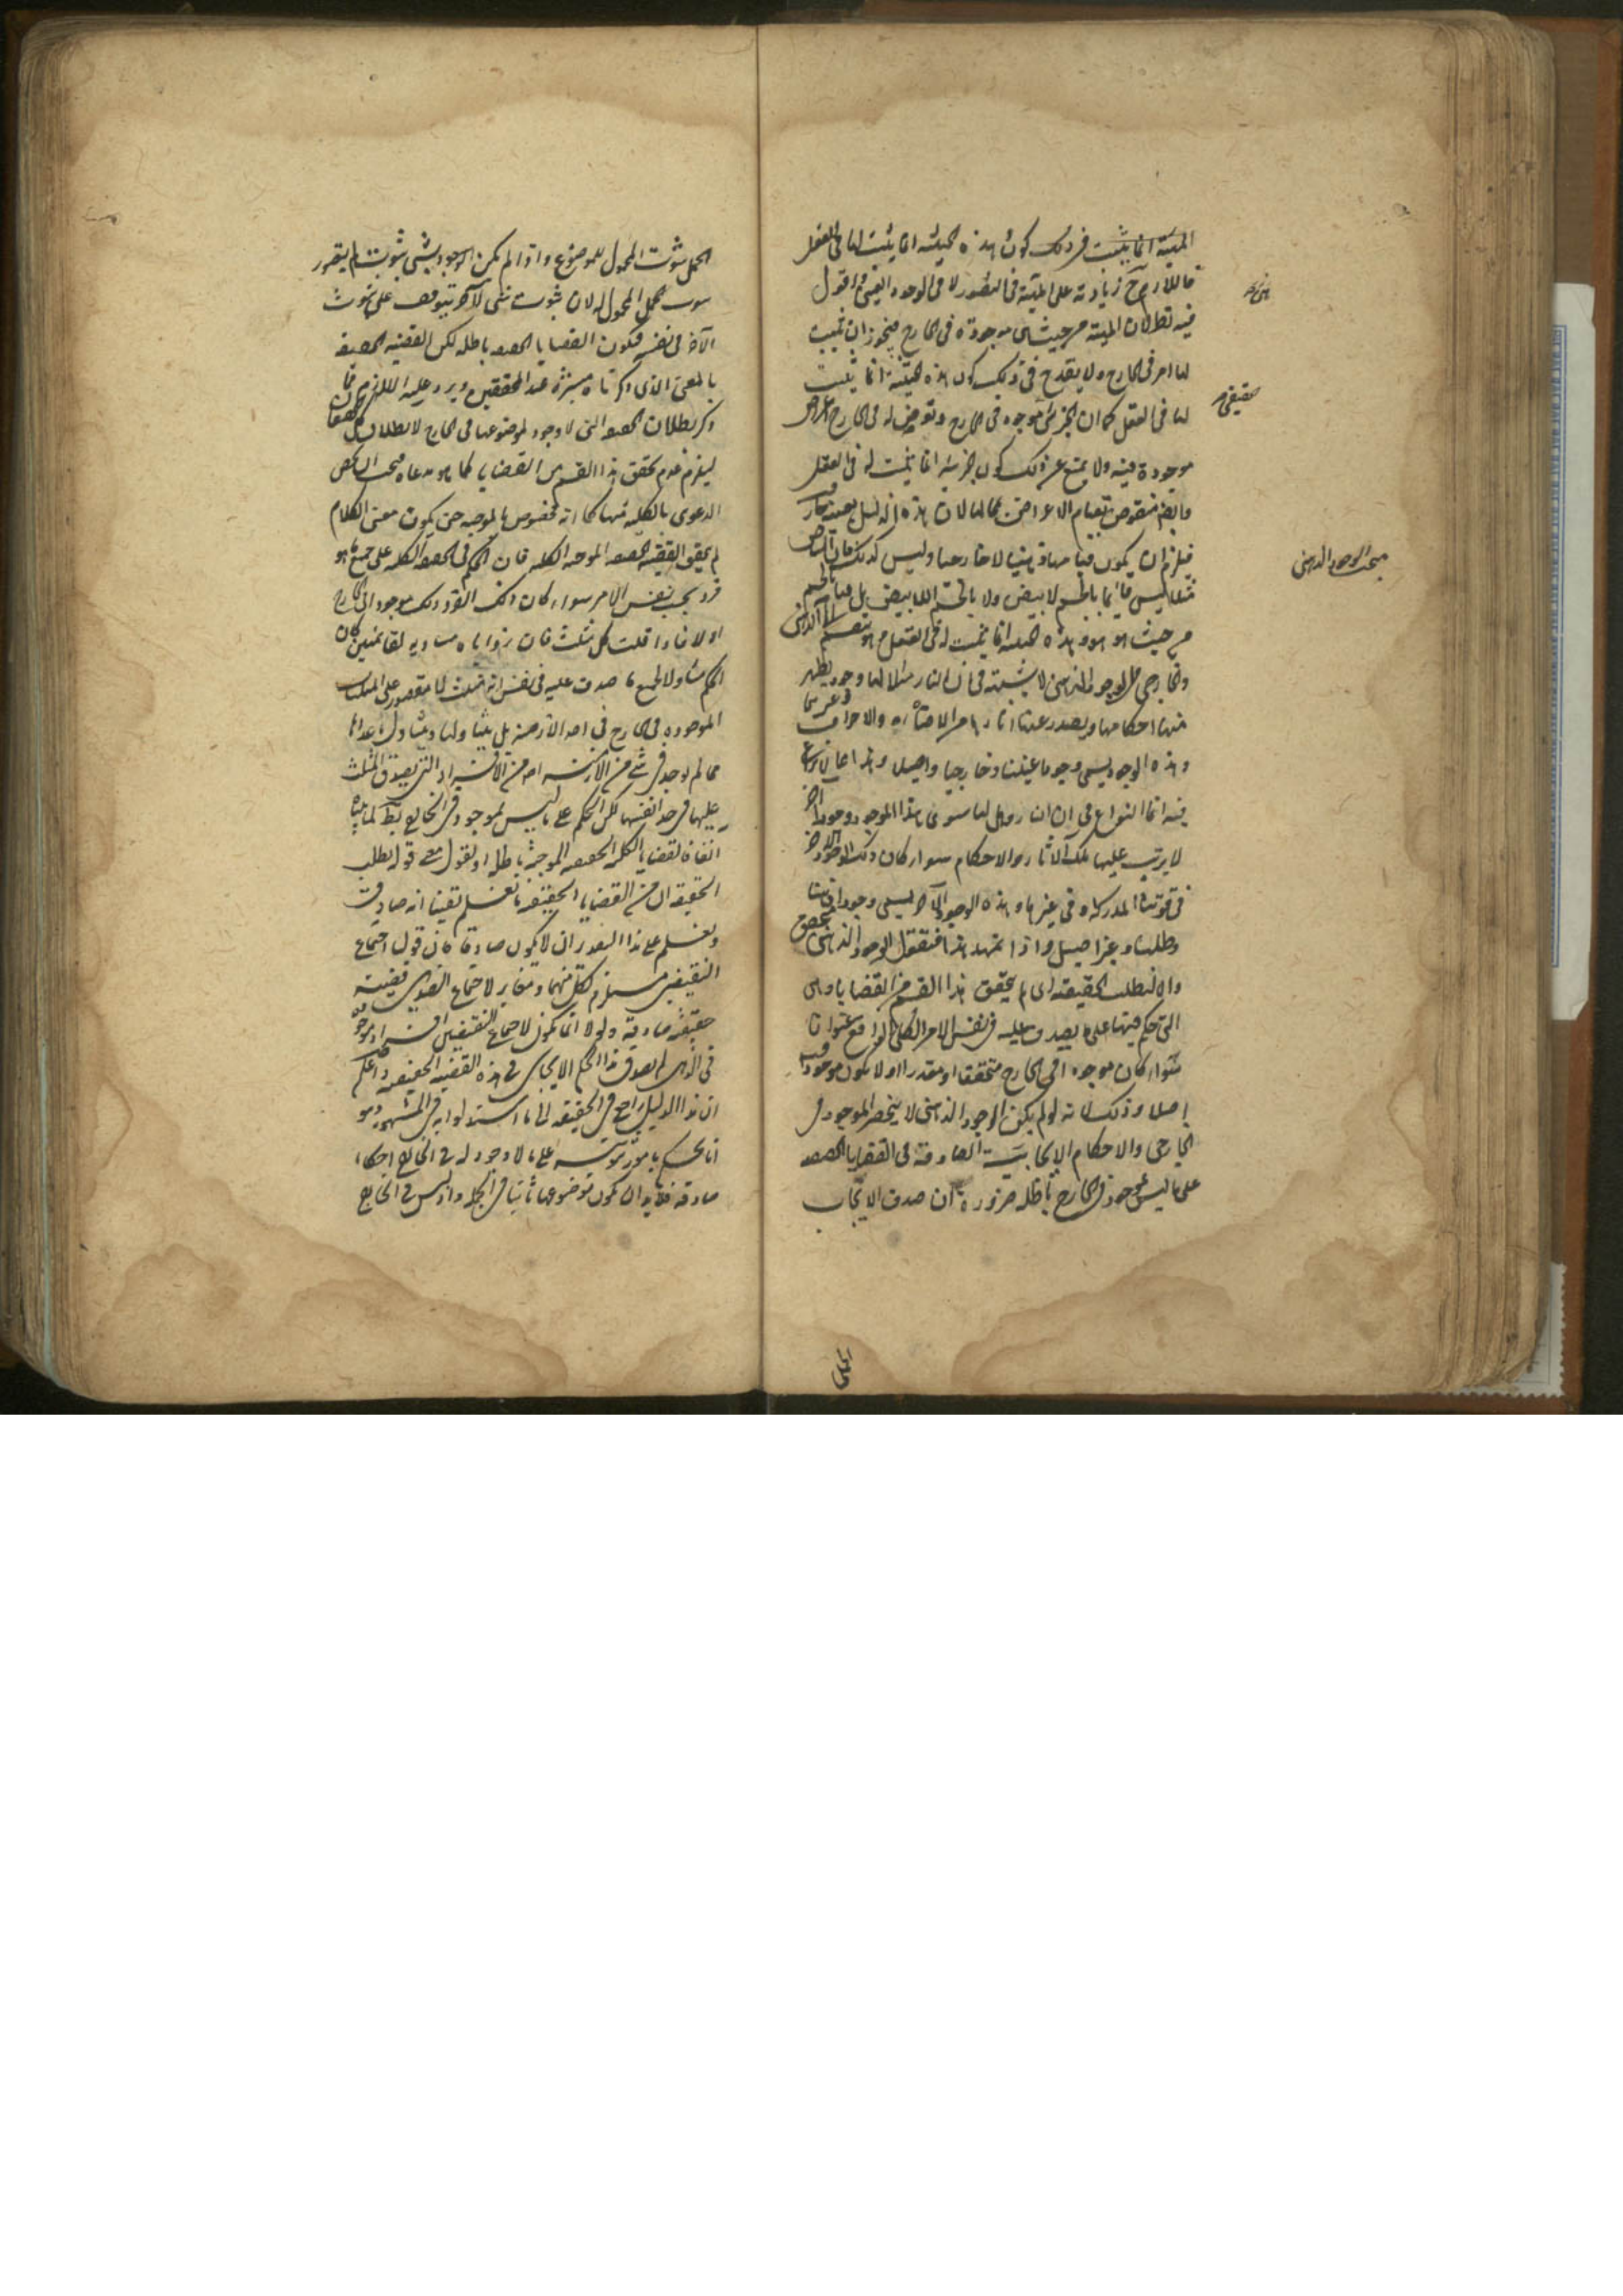 المهية انما يثبت فى ذلك كون هذه الحيثية انما يثبت لها فى العقل
فاللازم ح زيادته على المهية فى التصور لا فى الوجود العينى اقول
فيه نظر لان المهية من حيث هى موجودة فى الخارج فيجوز ان يثبت
لها امر فى الخارج ولا يقدح فى ذلك كون هذه الحيثية انما يثبت
لها فى العقل كما ان الجزئى موجود فى الخارج وتعرض له فى الخارج اعراض
موجودة فيه ولا يمنع عن ذلك كون جزئيته انما يثبت له فى العقل
وايضا منقوض بقيام الاعراض بمحالها لان هذا الدليل بعينه جار
فيلزم ان يكون قيامها ذهنيا لا خارجيا وليس كذلك فان البياض
مثلا ليس قائما بالجسم الابيض ولا بالجسم اللاابيض بل قيامه بالجسم
من حيث هو هو وهذه الحيثية انما يثبت له فى العقل وهو ينقسم الى الذهنى
والخارجى الوجود الذهنى لا شبهة فى ان النار مثلا لها وجود يظهر
منها احكامها ويصدر عنها اثارها من الاضاءة والاحراق وغيرهما
وهذا الوجود يسمى وجودا عينيا وخارجيا واصيلا وهذا مما لا نزاع
فيه انما النزاع فى ان النار هل لها سوى هذا الوجود وجود اخر
لا يترتب عليها تلك الاثار والاحكام سواء كان ذلك الوجود الاخر
فى قوتنا المدركة او فى غيرها وهذا الوجود الآخر يسمى وجودا ذهنيا
وظليا وغير اصيل واذا تمهد هذا فنقول الوجود الذهنى متحقق
والا لبطلت الحقيقية اى لم يتحقق هذا القسم من القضايا وهى
التى حكم فيها على ما يصدق عليه فى نفس الامر الكلى الواقع عنوانا
سواء كان موجودا فى الخارج محققا او مقدرا او لا يكون موجودا فيه
اصلا وذلك لانه لو لم يكن الوجود الذهنى لا ينحصر الموجود فى
الخارجى والاحكام الايجابية الصادقة فى القضايا الحقيقية
على ما ليس بموجود فى الخارج باطلة ضرورة ان صدق الايجاب
حقيقى
مبحث الوجود الذهنى
الحمل ثبوت المحمول للموضوع واذا لم يكن الوجود لشىء ثبوت لم يتصور
ثبوت المحمول له لان ثبوت شىء لآخر يتوقف على ثبوت
الآخر فى نفسه فيكون القضايا الحقيقية باطلة لكن القضية الحقيقية
بالمعنى الذى ذكرناه معتبرة عند المحققين ويرد عليه ان اللازم مما
ذكر بطلان الحقيقية التى لا وجود لموضوعها فى الخارج لا بطلان كلها
ليلزم عدم تحقق هذا القسم من القضايا كما هو مدعاه فيجب ان يخص
الدعوى بالكلية منها كما انه مخصوص بالموجبة حتى يكون معنى الكلام
لم يتحقق القضية الحقيقية الموجبة الكلية فان الحكم فى الحقيقية الكلية على جميع ما هو
فرد بحسب نفس الامر سواء كان ذلك الفرد موجودا فى الخارج
اولا فاذا قلت كل مثلث فان زواياه مساوية لقائمتين كان
الحكم متناولا لجميع ما صدق عليه فى نفس انه مثلث لا مقصورا على المثلثات
الموجودة فى الخارج فى احد الازمنة بل يتناولها ويتناول ما عداها
مما لم يوجد فى شىء من الازمنة اصلا من الافراد التى يصدق المثلث
عليها فى حد انفسها لكن الحكم على ما ليس بموجود فى الخارج بط لما بيناه
انفا فالقضايا الكلية الحقيقية الموجبة باطلة او نقول معنى قوله بطلت
الحقيقية ان من القضايا الحقيقية ما نعلم يقينا انه صادق
ونعلم على هذا التقدير ان لا يكون صادقا فان قولنا اجتماع
النقيضين مستلزم لكل منهما ومغاير لاجتماع الضدين قضية
حقيقية صادقة ولولا انما يكون لاجتماع النقيضين افراد موجودة
فى الذهن لم يصدق هذا الحكم الايجابى فى هذه القضية الحقيقية واعلم
ان هذا الدليل راجع فى الحقيقة الى ما استدلوا به فى المشهور وهو
انا نحكم بامور ثبوتية على ما لا وجود له فى الخارج احكاما
صادقة فلابد ان يكون موضوعها ثابتا فى الجملة واذ ليس فى الخارج